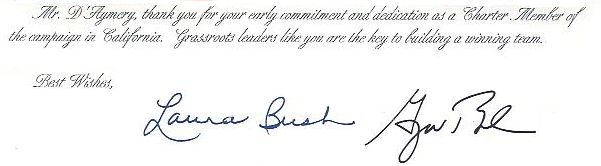 Mr. D'Aymery, thank you for your early commitment and dedication as a Charter Member of
the campaign in California. Grassroots leaders like you are the key to building a winning team.
Best Wishes,
Laura Bush